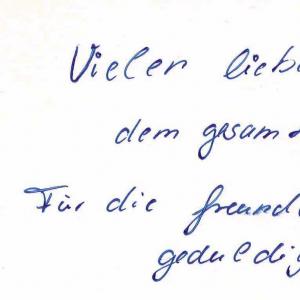 Vielen liebe
dem gesam
Für die freund
geduldig